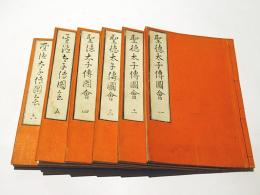 聖徳太子傳圖會 一
聖徳太子傳圖會 二
聖徳太子傳圖會 三
聖徳太子傳圖會 四
聖徳太子傳圖會 五
聖徳太子傳圖會 六